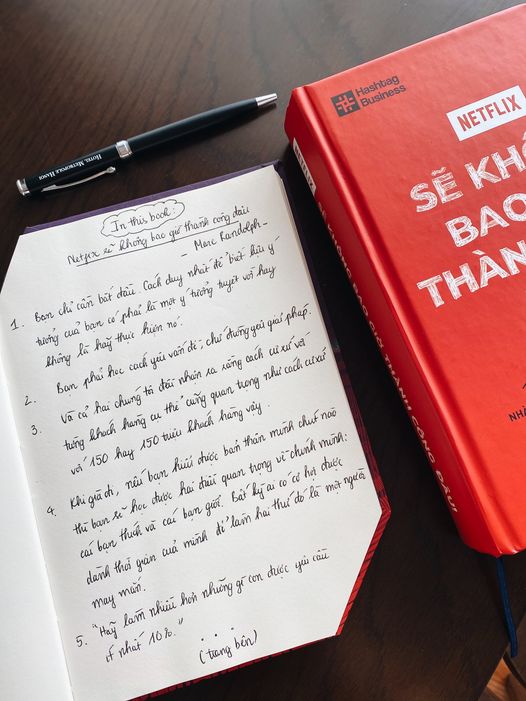 Hashtag
Business
NETFLIX
SẼ KHÔ
BAO
THÀN
NHÀ
NETFLIX
HOTEL METROPOLE HANOI
In this book:
Netflix sẽ không bao giờ thành công đâu
- Marc Randolph -
1. Bạn chỉ cần bắt đầu. Cách duy nhất để biết liệu ý
tưởng của bạn có phải là một ý tưởng tuyệt vời hay
không là hãy thực hiện nó.
2. Bạn phải học cách yêu vấn đề, chứ đừng yêu giải pháp.
3. Và cả hai chúng tôi đều nhận ra rằng cách cư xử với
từng khách hàng cụ thể cũng quan trọng như cách cư xử
với 150 hay 150 triệu khách hàng vậy.
4. Khi già đi, nếu bạn hiểu được bản thân mình chút nào
thì bạn sẽ học được hai điều quan trọng về chính mình:
cái bạn thích và cái bạn giỏi. Bất kỳ ai có cơ hội được
dành thời gian của mình để làm hai thứ đó là một người
may mắn.
5. "Hãy làm nhiều hơn những gì con được yêu cầu
ít nhất 10%."
...
(trang bên)